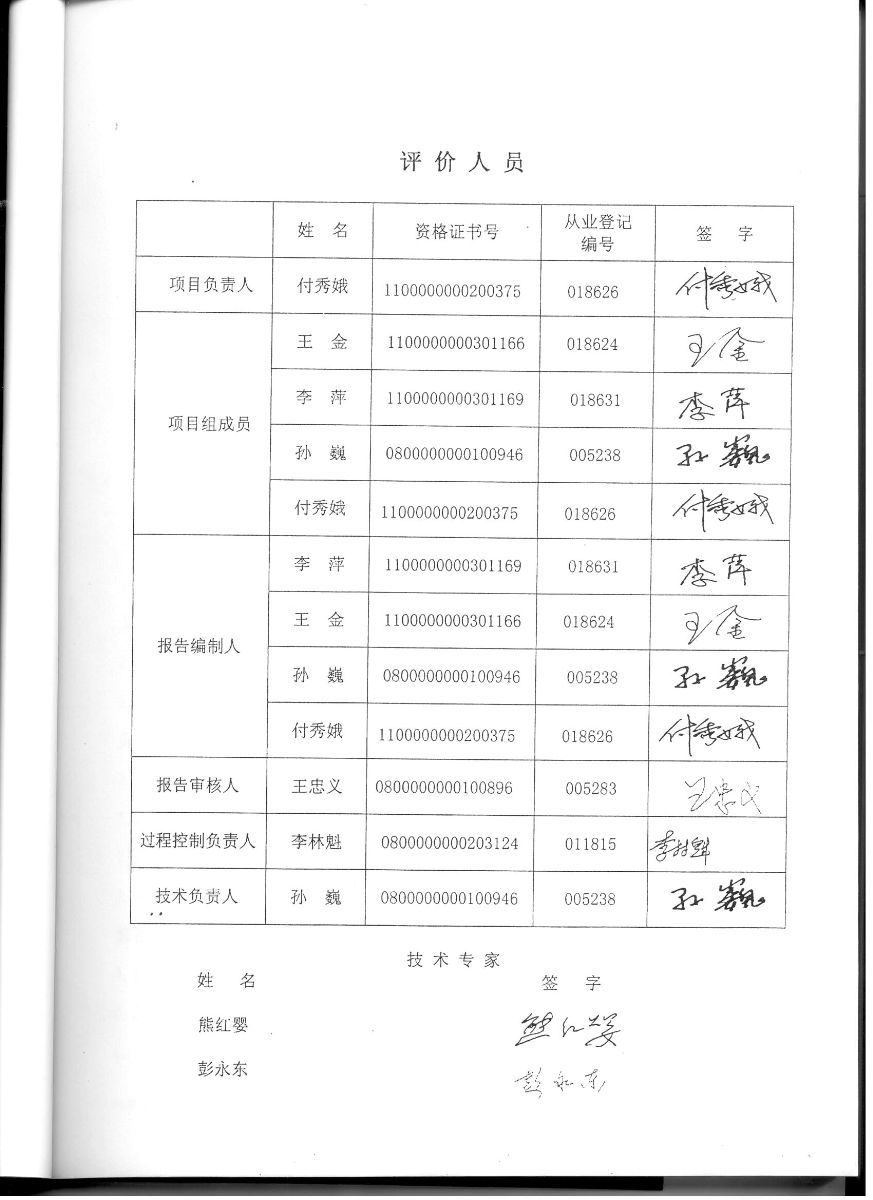 评 价 人 员
姓 名 资格证书号 从业登记编号 签 字
项目负责人 付秀娥 1100000000200375 018626 付秀娥
项目组成员 王 金 1100000000301166 018624 王金
李 萍 1100000000301169 018631 李萍
孙 巍 0800000000100946 005238 孙巍
付秀娥 1100000000200375 018626 付秀娥
报告编制人 李 萍 1100000000301169 018631 李萍
王 金 1100000000301166 018624 王金
孙 巍 0800000000100946 005238 孙巍
付秀娥 1100000000200375 018626 付秀娥
报告审核人 王忠义 0800000000100896 005283 王忠义
过程控制负责人 李林魁 0800000000203124 011815 李林魁
技术负责人 孙 巍 0800000000100946 005238 孙巍
技 术 专 家
姓 名 签 字
熊红婴 熊红婴
彭永东 彭永东